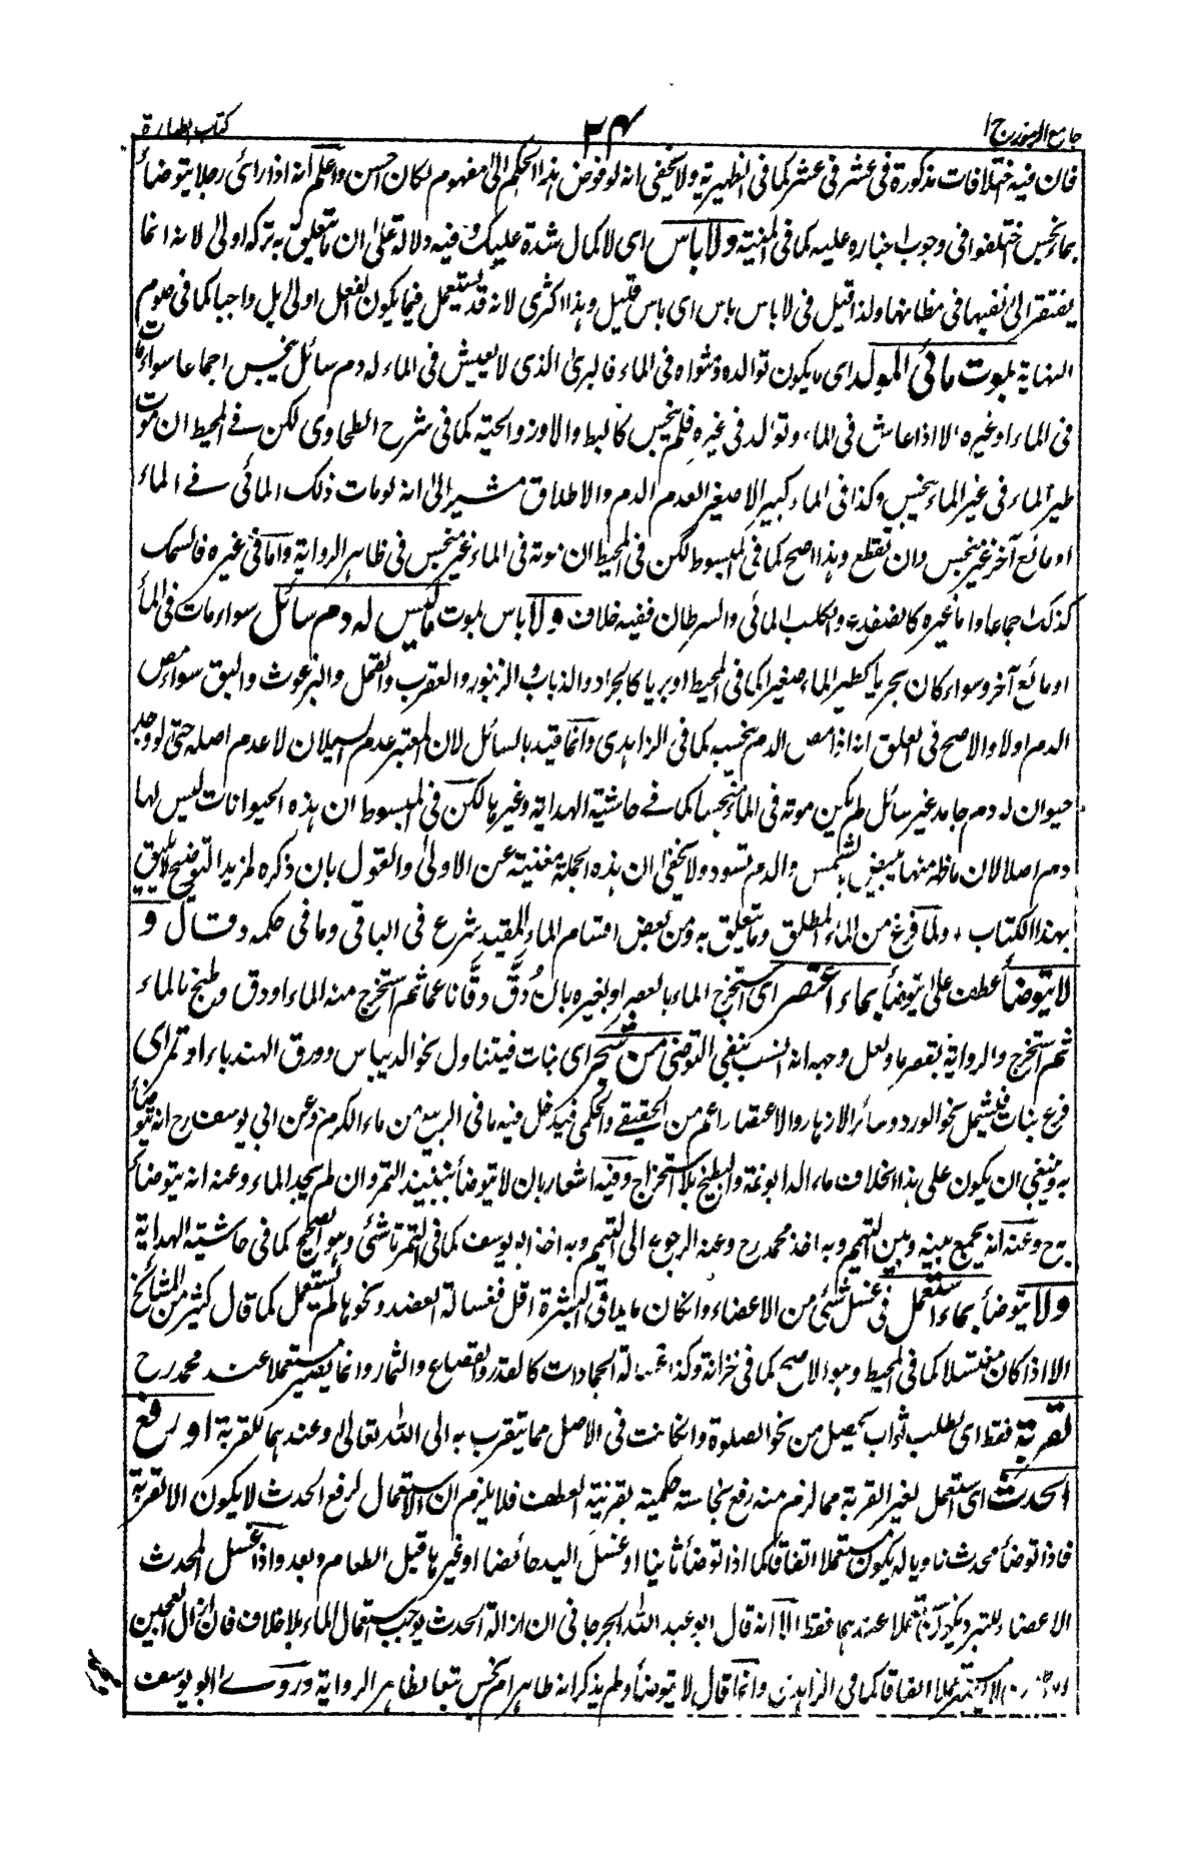 جامع الرموز ج ١
٢٤
كتاب الطهارة
فان فيه اختلافات مذكورة فى عشر فى عشر كما فى الظهيرية ولا يخفى انه لو فوض هذا الحكم الى مفهوم لكان احسن واعلم انه اذا رائى رجلا يتوضأ
بماء نجس اختلفوا فى وجوب اخباره عليه كما فى المنية ولا باس اى لا كمال شدة عليك وفيه دلالة على ان ما تعلق به تركه اولى لانه انما
يفتقر الى نفيها فى مظانها ولذا قيل فى لا باس باس اى باس قليل وهذا اكثرى لانه قد يستعمل فيما يكون الفعل اولى بل واجبا كما فى صوم
النهاية بموت مائى المولد اى ما يكون توالده ومثواه فى الماء فالبرى الذى لا يعيش فى الماء له دم سائل نجس اجماعا سواء مات
فى الماء او غيره الا اذا عاش فى الماء وتولد فى غيره فلم ينجس كالبط والاوز والحية كما فى شرح الطحاوى لكن فى المحيط ان موت
طير الماء فى غير الماء ينجس وكذا فى الماء كبير الا صغير العدم الدم والاطلاق مشير الى انه لو مات ذلك المائى فى الماء
او مائع آخر غير منجس وان تقطع وهذا اصح كما فى المبسوط لكن فى المحيط ان موته فى الماء غير منجس فى ظاهر الرواية واما فى غيره فالسمك
كذلك اجماعا واما غيره كالضفدع والكلب المائى والسرطان ففيه خلاف ولا باس بموت ما ليس له دم سائل سواء مات فى الماء
او مائع آخر وسواء كان بحريا كطير الماء صغيرا كما فى المحيط او بريا كالجراد والذباب والزنبور والعقرب والقمل والبرغوث والبق سواء مص
الدم او لا والاصح فى العلق انه اذا مص الدم نجسه كما فى الزاهدى وانما قيد بالسائل لان المعتبر عدم السيلان لا عدم اصله حتى لو وجد
حيوان له دم جامد غير سائل لم يكن موته فى الماء منجسا كما فى حاشية الهداية وغيرها لكن فى المبسوط ان هذه الحيوانات ليس لها
دم اصلا لان ما ظهر منها يبيض بالشمس والدم يسود ولا يخفى ان هذه الجملة مغنية عن الاولى والقول بان ذكره لمزيد التوضيح لا يليق
بهذا الكتاب ، ولما فرغ من الماء المطلق وما يتعلق به ومن بعض اقسام الماء المقيد شرع فى الباقى وما فى حكمه وقال و
لا يتوضأ عطف على يتوضأ بماء اعتصر اى استخرج الماء بالعصر او بغيره بان دُقَّ دقًّا ناعما ثم استخرج منه الماء او دق وطبخ بالماء
ثم استخرج والرواية بقصر ما ولعل وجهه انه انسب بنفى التوضى من شجر اى نبات فيتناول نحو الديباس وورق الهندباء او ثمر اى
فرع نبات فيشمل نحو الورد وسائر الازهار والاعتصار اعم من الحقيقى والحكمى فيدخل فيه ما فى الربيع من ماء الكرم وعن ابى يوسف رح انه يتوضأ
به وينبغى ان يكون على هذا الخلاف ماء الدابوغة والبطيخ بلا استخراج وفيه اشعار بان لا يتوضأ بنبيذ التمر وان لم يجد الماء وعنه انه يتوضأ
به ح وعنه انه يجمع بينه وبين التيمم وبه اخذ محمد رح وعنه الرجوع الى التيمم وبه اخذ ابو يوسف كما فى التمرتاشى وهو الصحيح كما فى حاشية الهداية
ولا يتوضأ بماء استعمل فى غسل شئى من الاعضاء وان كان ما يلاقى البشرة اقل فغسالة العضد ونحوها لم يستعمل كما قال كثير من المشائخ
الا اذا كان مغتسلا كما فى المحيط وهو الاصح كما فى خزانة وكذا غسالة الجمادات كالقدر والقصاع والثمار وانما يصير مستعملا عند محمد رح
لقربة فقط اى لطلب ثواب يحصل من نحو الصلوة وان كانت فى الاصل مما يتقرب به الى الله تعالى وعندهما للقربة او رفع
الحدث اى استعمل لغير القربة مما لزم منه رفع نجاسة حكمية بقرينة العطف فلا يلزم ان الاستعمال لرفع الحدث لا يكون الا لقربة
فاذا توضأ محدث ناويا له يكون مستعملا اتفاقا كما اذا توضأ ثانيا او غسل اليد حائضا او غيرها قبل الطعام وبعده واذا غسل المحدث
الاعضاء للتبرد يكون مستعملا عندهما فقط الا انه قال ابو عبد الله الجرجانى ان ازالة الحدث يوجب استعمال الماء بلا خلاف فان ازال العجين
لا يستعمل اتفاقا كما فى الزاهدى وانما قال لا يتوضأ ولم يذكر انه طاهر ام نجس تبعا لظاهر الرواية وروى ابو يوسف